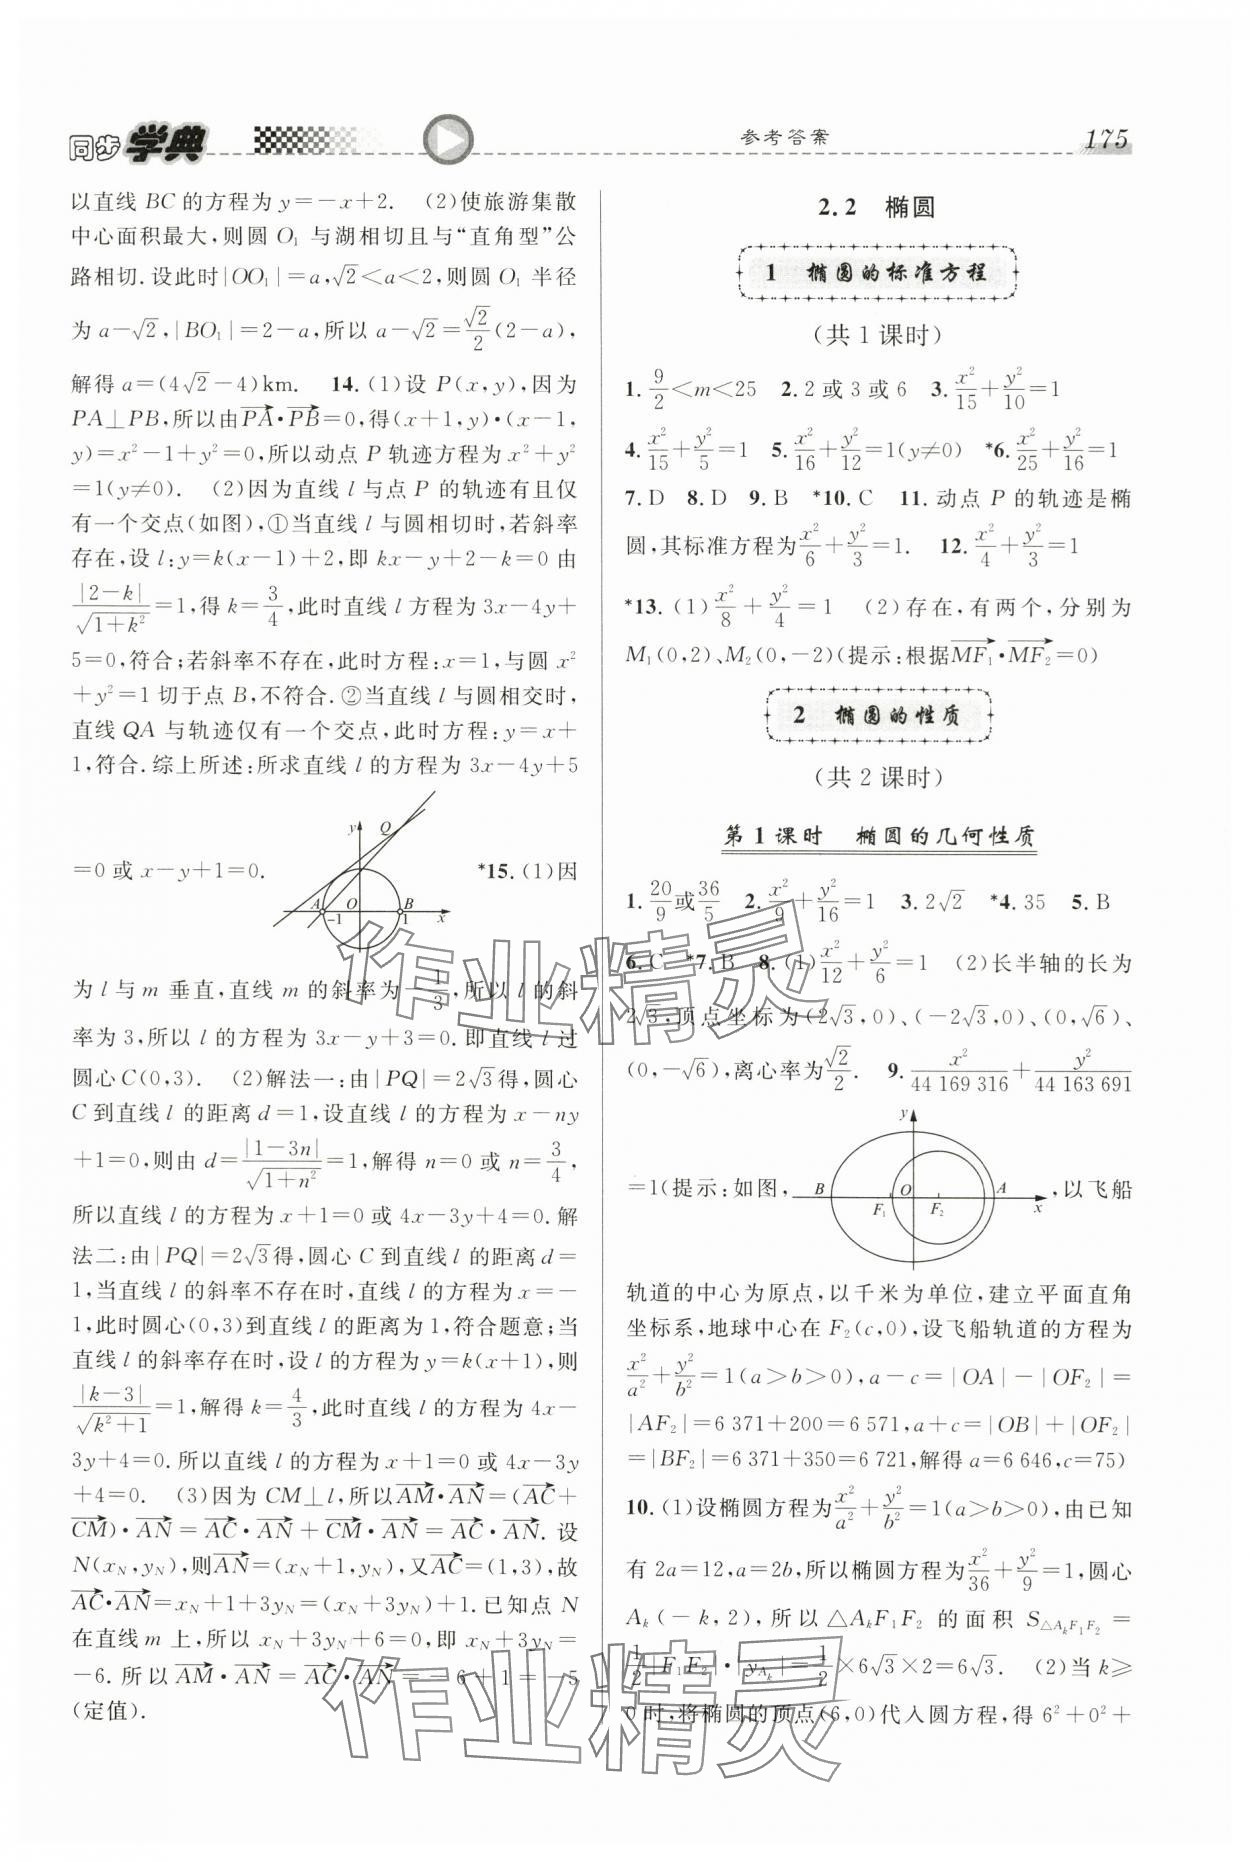 同步学典
参考答案
175
以直线 BC 的方程为 y=-x+2. (2)使旅游集散
中心面积最大,则圆 O₁ 与湖相切且与“直角型”公
路相切.设此时|OO₁|=a,√2<a<2,则圆 O₁ 半径
为 a-√2,|BO₁|=2-a,所以 a-√2=√2/2(2-a),
解得 a=(4√2-4)km. 14.(1)设 P(x,y),因为
PA⊥PB,所以由PA→·PB→=0,得(x+1,y)·(x-1,
y)=x²-1+y²=0,所以动点 P 轨迹方程为 x²+y²
=1(y≠0). (2)因为直线 l 与点 P 的轨迹有且仅
有一个交点(如图),①当直线 l 与圆相切时,若斜率
存在,设 l:y=k(x-1)+2,即 kx-y+2-k=0 由
|2-k|/√(1+k²)=1,得 k=3/4,此时直线 l 方程为 3x-4y+
5=0,符合;若斜率不存在,此时方程:x=1,与圆 x²
+y²=1 切于点 B,不符合.②当直线 l 与圆相交时,
直线 QA 与轨迹仅有一个交点,此时方程:y=x+
1,符合.综上所述:所求直线 l 的方程为 3x-4y+5
=0 或 x-y+1=0.
y Q A O B -1 1 x
*15.(1)因
为 l 与 m 垂直,直线 m 的斜率为-1/3,所以 l 的斜
率为 3,所以 l 的方程为 3x-y+3=0.即直线 l 过
圆心 C(0,3). (2)解法一:由|PQ|=2√3得,圆心
C 到直线 l 的距离 d=1,设直线 l 的方程为 x-ny
+1=0,则由 d=|1-3n|/√(1+n²)=1,解得 n=0 或 n=3/4,
所以直线 l 的方程为 x+1=0 或 4x-3y+4=0.解
法二:由|PQ|=2√3得,圆心 C 到直线 l 的距离 d=
1,当直线 l 的斜率不存在时,直线 l 的方程为 x=-
1,此时圆心(0,3)到直线 l 的距离为 1,符合题意;当
直线 l 的斜率存在时,设 l 的方程为 y=k(x+1),则
|k-3|/√(k²+1)=1,解得 k=4/3,此时直线 l 的方程为 4x-
3y+4=0.所以直线 l 的方程为 x+1=0 或 4x-3y
+4=0. (3)因为 CM⊥l,所以AM→·AN→=(AC→+
CM→)·AN→=AC→·AN→+CM→·AN→=AC→·AN→. 设
N(x_N,y_N),则AN→=(x_N+1,y_N),又AC→=(1,3),故
AC→·AN→=x_N+1+3y_N=(x_N+3y_N)+1.已知点 N
在直线 m 上,所以 x_N+3y_N+6=0,即 x_N+3y_N=
-6.所以 AM→·AN→=AC→·AN→=-6+1=-5
(定值).
2.2 椭圆
1 椭圆的标准方程
(共 1 课时)
1. 9/2<m<25 2. 2 或 3 或 6 3. x²/15+y²/10=1
4. x²/15+y²/5=1 5. x²/16+y²/12=1(y≠0) *6. x²/25+y²/16=1
7. D 8. D 9. B *10. C 11. 动点 P 的轨迹是椭
圆,其标准方程为x²/6+y²/3=1. 12. x²/4+y²/3=1
*13.(1)x²/8+y²/4=1 (2)存在,有两个,分别为
M₁(0,2)、M₂(0,-2)(提示:根据MF₁→·MF₂→=0)
2 椭圆的性质
(共 2 课时)
第 1 课时 椭圆的几何性质
1. 20/9或36/5 2. x²/9+y²/16=1 3. 2√2 *4. 35 5. B
6. C *7. B 8. (1)x²/12+y²/6=1 (2)长半轴的长为
2√3,顶点坐标为(2√3,0)、(-2√3,0)、(0,√6)、
(0,-√6),离心率为√2/2. 9. x²/44 169 316+y²/44 163 691
=1(提示:如图,
y B O A F₁ F₂ x
,以飞船
轨道的中心为原点,以千米为单位,建立平面直角
坐标系,地球中心在 F₂(c,0),设飞船轨道的方程为
x²/a²+y²/b²=1(a>b>0),a-c=|OA|-|OF₂|=
|AF₂|=6 371+200=6 571,a+c=|OB|+|OF₂|
=|BF₂|=6 371+350=6 721,解得 a=6 646,c=75)
10. (1)设椭圆方程为x²/a²+y²/b²=1(a>b>0),由已知
有 2a=12,a=2b,所以椭圆方程为x²/36+y²/9=1,圆心
A_k(-k,2),所以△A_kF₁F₂ 的面积 S_△A_kF₁F₂=
1/2|F₁F₂|·|y_A_k|=1/2×6√3×2=6√3. (2)当 k≥
0 时,将椭圆的顶点(6,0)代入圆方程,得 6²+0²+
作业精灵
作业精灵